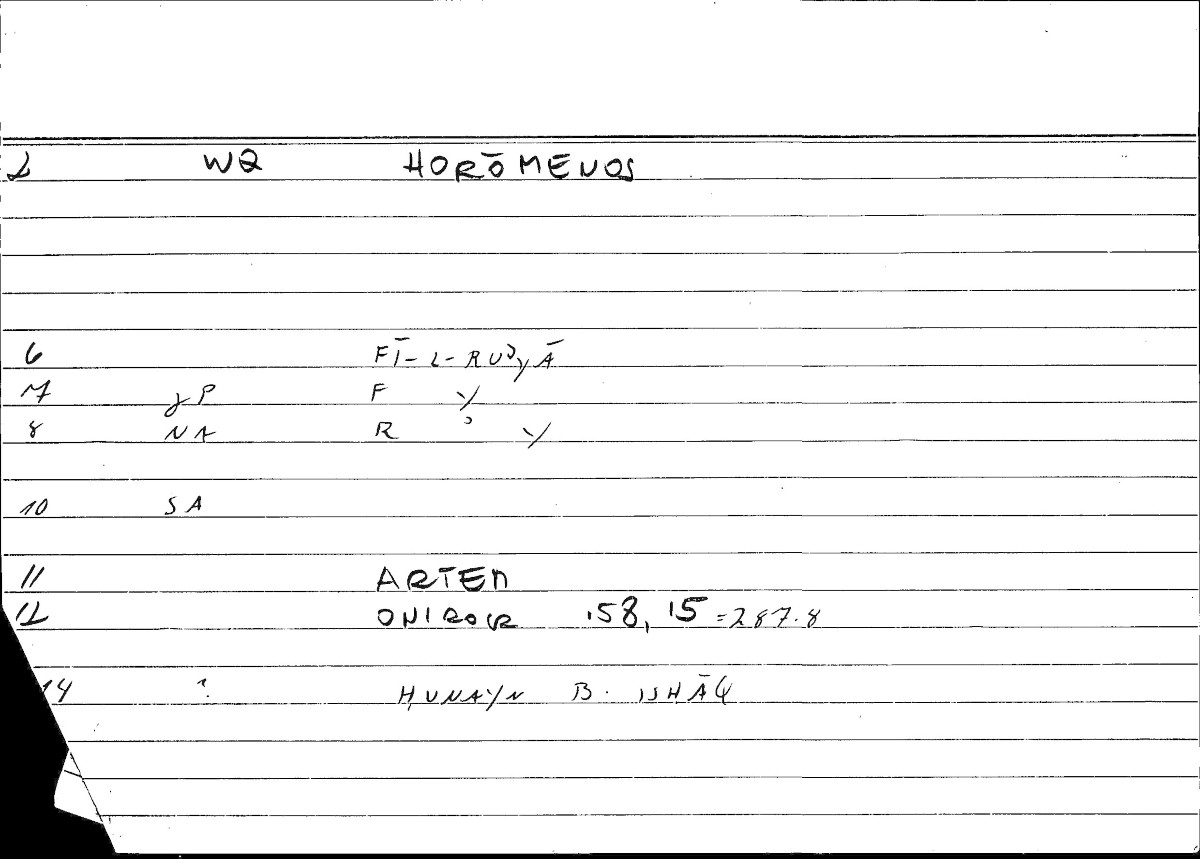 2 WQ HORŌMENOS
6 FĪ-L-RUʾYĀ
7 JP F Y
8 NA R ʾ Y
10 SA
11 ARTEM
12 ONIROCR 158, 15 = 287.8
14 ? ḤUNAYN B. ISḤĀQ